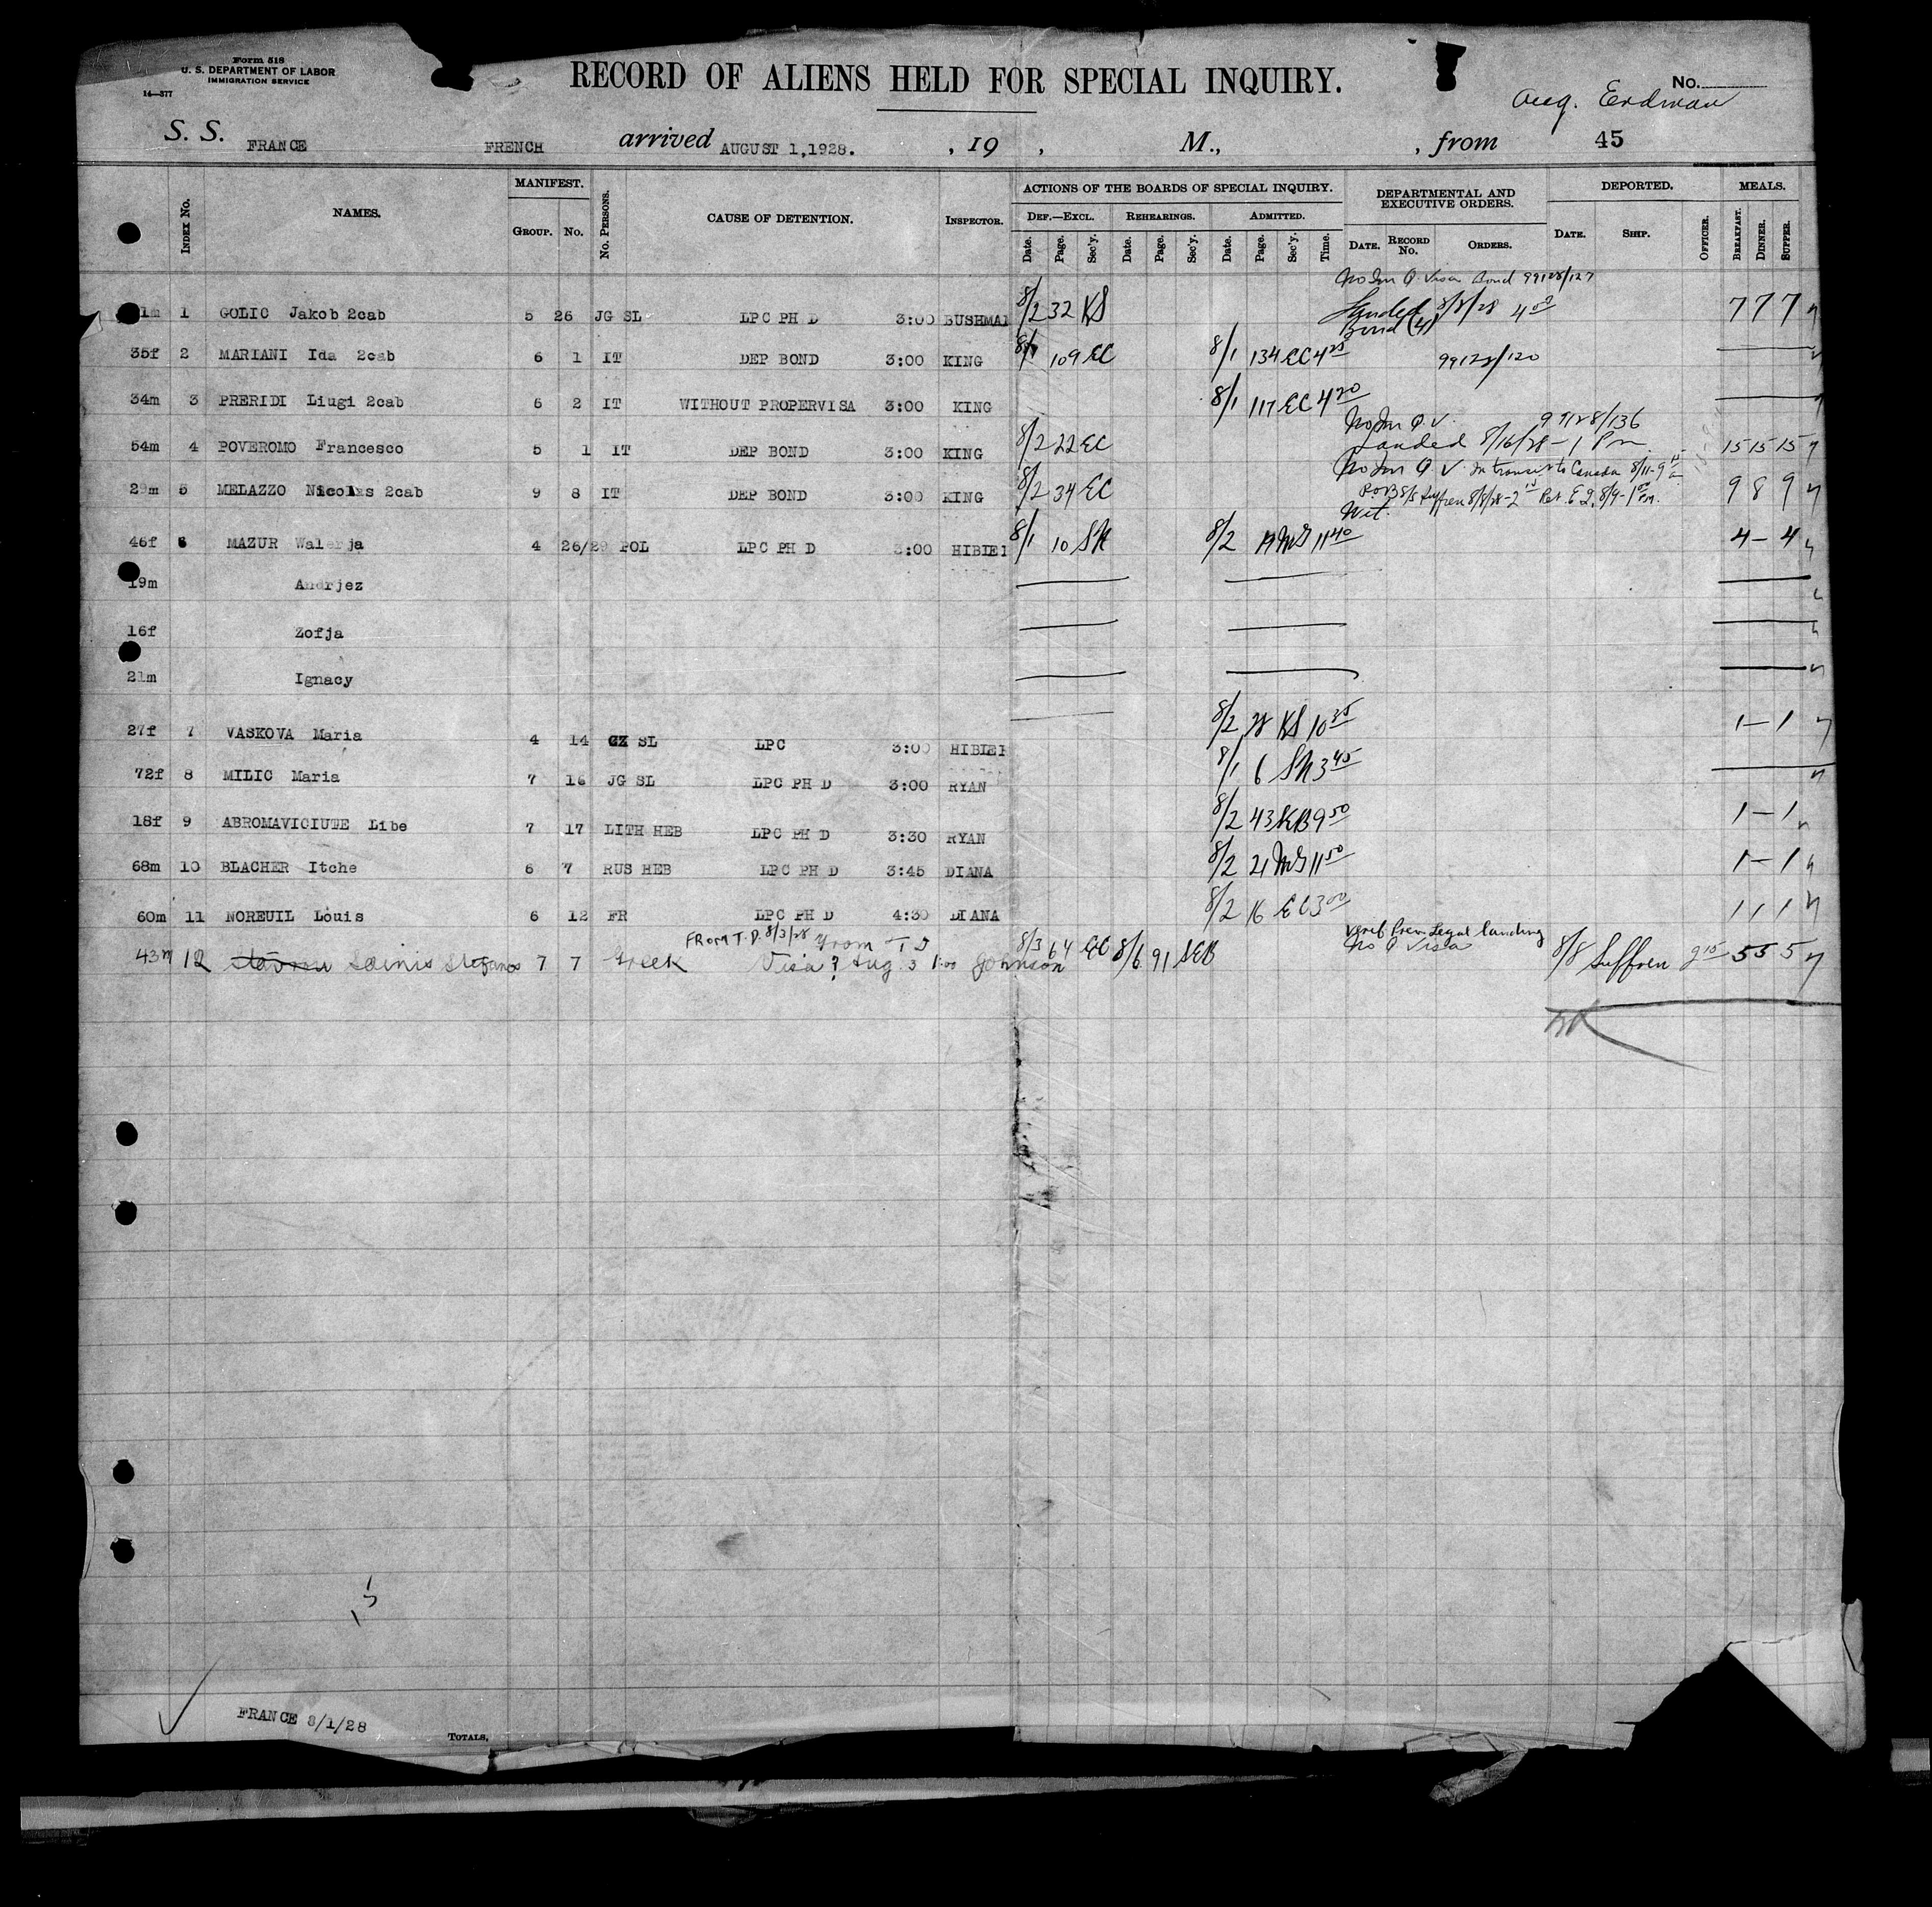 Form 518
U. S. DEPARTMENT OF LABOR
IMMIGRATION SERVICE
14—377
RECORD OF ALIENS HELD FOR SPECIAL INQUIRY.
No.
Aug. Erdman
S. S. FRANCE FRENCH arrived AUGUST 1,1928. , 19 , M., , from 45
INDEX No. NAMES. MANIFEST. GROUP. No. No. PERSONS. CAUSE OF DETENTION. INSPECTOR. ACTIONS OF THE BOARDS OF SPECIAL INQUIRY. DEF.—EXCL. Date. Page. Sec'y. REHEARINGS. Date. Page. Sec'y. ADMITTED. Date. Page. Sec'y. Time. DEPARTMENTAL AND EXECUTIVE ORDERS. DATE. RECORD No. ORDERS. DEPORTED. DATE. SHIP. OFFICER. MEALS. BREAKFAST. DINNER. SUPPER.
No Im Q. Visa Bond 99128/127
1m 1 GOLIC Jakob 2cab 5 26 JG SL LPC PH D 3:00 BUSHMAN 8/2 32 KS Landed 8/8/28 4 00 7 7 7
Bond (4)
35f 2 MARIANI Ida 2cab 6 1 IT DEP BOND 3:00 KING 8/1 109 EC 8/1 134 EC 4 25 99128/120
34m 3 PRERIDI Liugi 2cab 6 2 IT WITHOUT PROPERVISA 3:00 KING 8/1 117 EC 4 20
No Im Q.V. 99128/136
54m 4 POVEROMO Francesco 5 1 IT DEP BOND 3:00 KING 8/2 22 EC Landed 8/16/28 - 1 Pm 15 15 15
No Im Q V. In transit to Canada 8/11-9 15 a
29m 5 MELAZZO Nicolas 2cab 9 8 IT DEP BOND 3:00 KING 8/2 34 EC P on B S/S Suffren 8/8/28 - 2 15 Ret. E I. 8/9 - 1 00 PM. 9 8 9
Wit.
46f 6 MAZUR Walerja 4 26/29 POL LPC PH D 3:00 HIBIE 8/1 10 SN 8/2 MG 11 40 4 - 4
19m Andrjez
16f Zofja
21m Ignacy
27f 7 VASKOVA Maria 4 14 CZ SL LPC 3:00 HIBIE 8/2 28 KS 10 35 1 - 1
72f 8 MILIC Maria 7 16 JG SL LPC PH D 3:00 RYAN 8/1 6 SN 3 45
18f 9 ABROMAVICIUTE Libe 7 17 LITH HEB LPC PH D 3:30 RYAN 8/2 43 KB 9 50 1 - 1
68m 10 BLACHER Itche 6 7 RUS HEB LPC PH D 3:45 DIANA 8/2 21 MG 11 50 1 - 1
60m 11 NOREUIL Louis 6 12 FR LPC PH D 4:30 DIANA 8/2 16 EC 3 00 1 1 1
FROM T.D. 8/3/28 From T D Verif. Prev. Legal landing
43m 12 Stefanos 7 7 Greek Visa? Aug 3 1:00 Johnson 8/3 64 EC 8/6 91 SEB No Q Visa 8/8 Suffren 2 15 5 5 5
FRANCE 8/1/28
TOTALS,